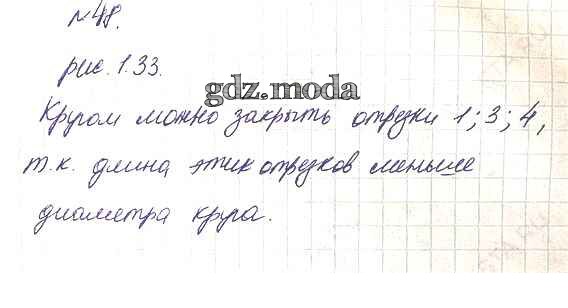 №48.
рис. 1.33.
gdz.moda
Кругом можно закрыть отрезки 1; 3; 4,
т.к. длина этих отрезков меньше
диаметра круга.